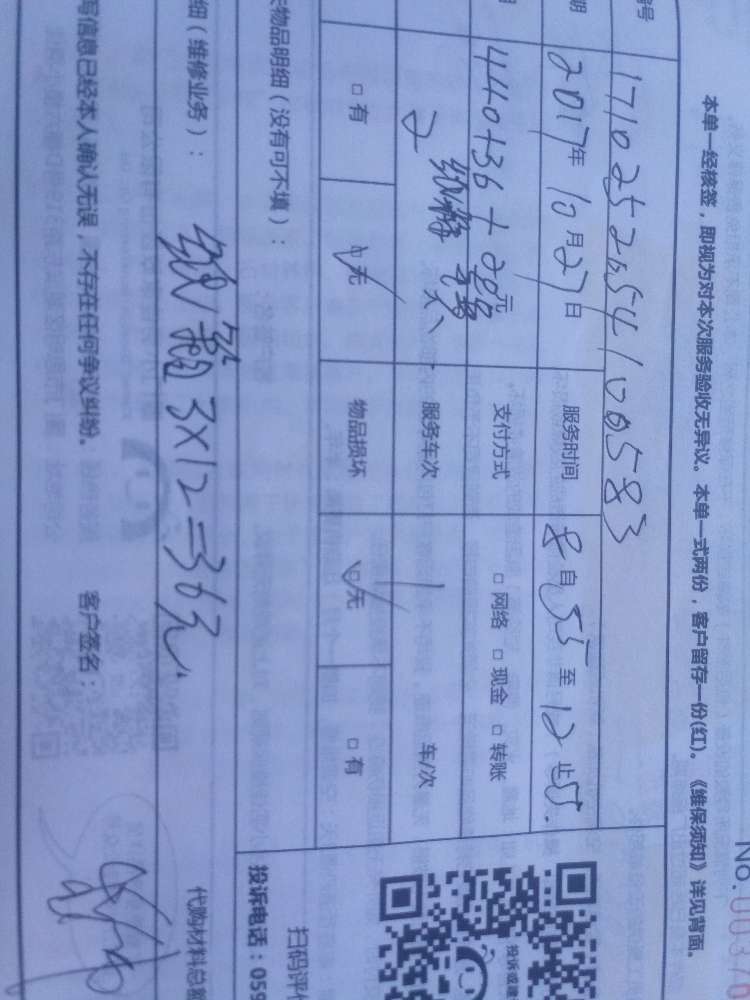 No.0037
本单一经核签，即视为对本次服务验收无异议。本单一式两份，客户留存一份(红)。《维保须知》详见背面。
编号 1710252654100583
期 2017年10月27日 服务时间 8自55至12止55.
440+36+ 元 支付方式 □网络 □现金 □转账
纸箱
2 人 服务车次 1 车/次
□有 □无 物品损坏 □无 □有
物品明细（没有可不填）：
细（维修业务）： 纸箱 3X12=36元
代购材料总额
写信息已经本人确认无误，不存在任何争议纠纷。 客户签名：
投诉或建
扫码评价
投诉电话：059